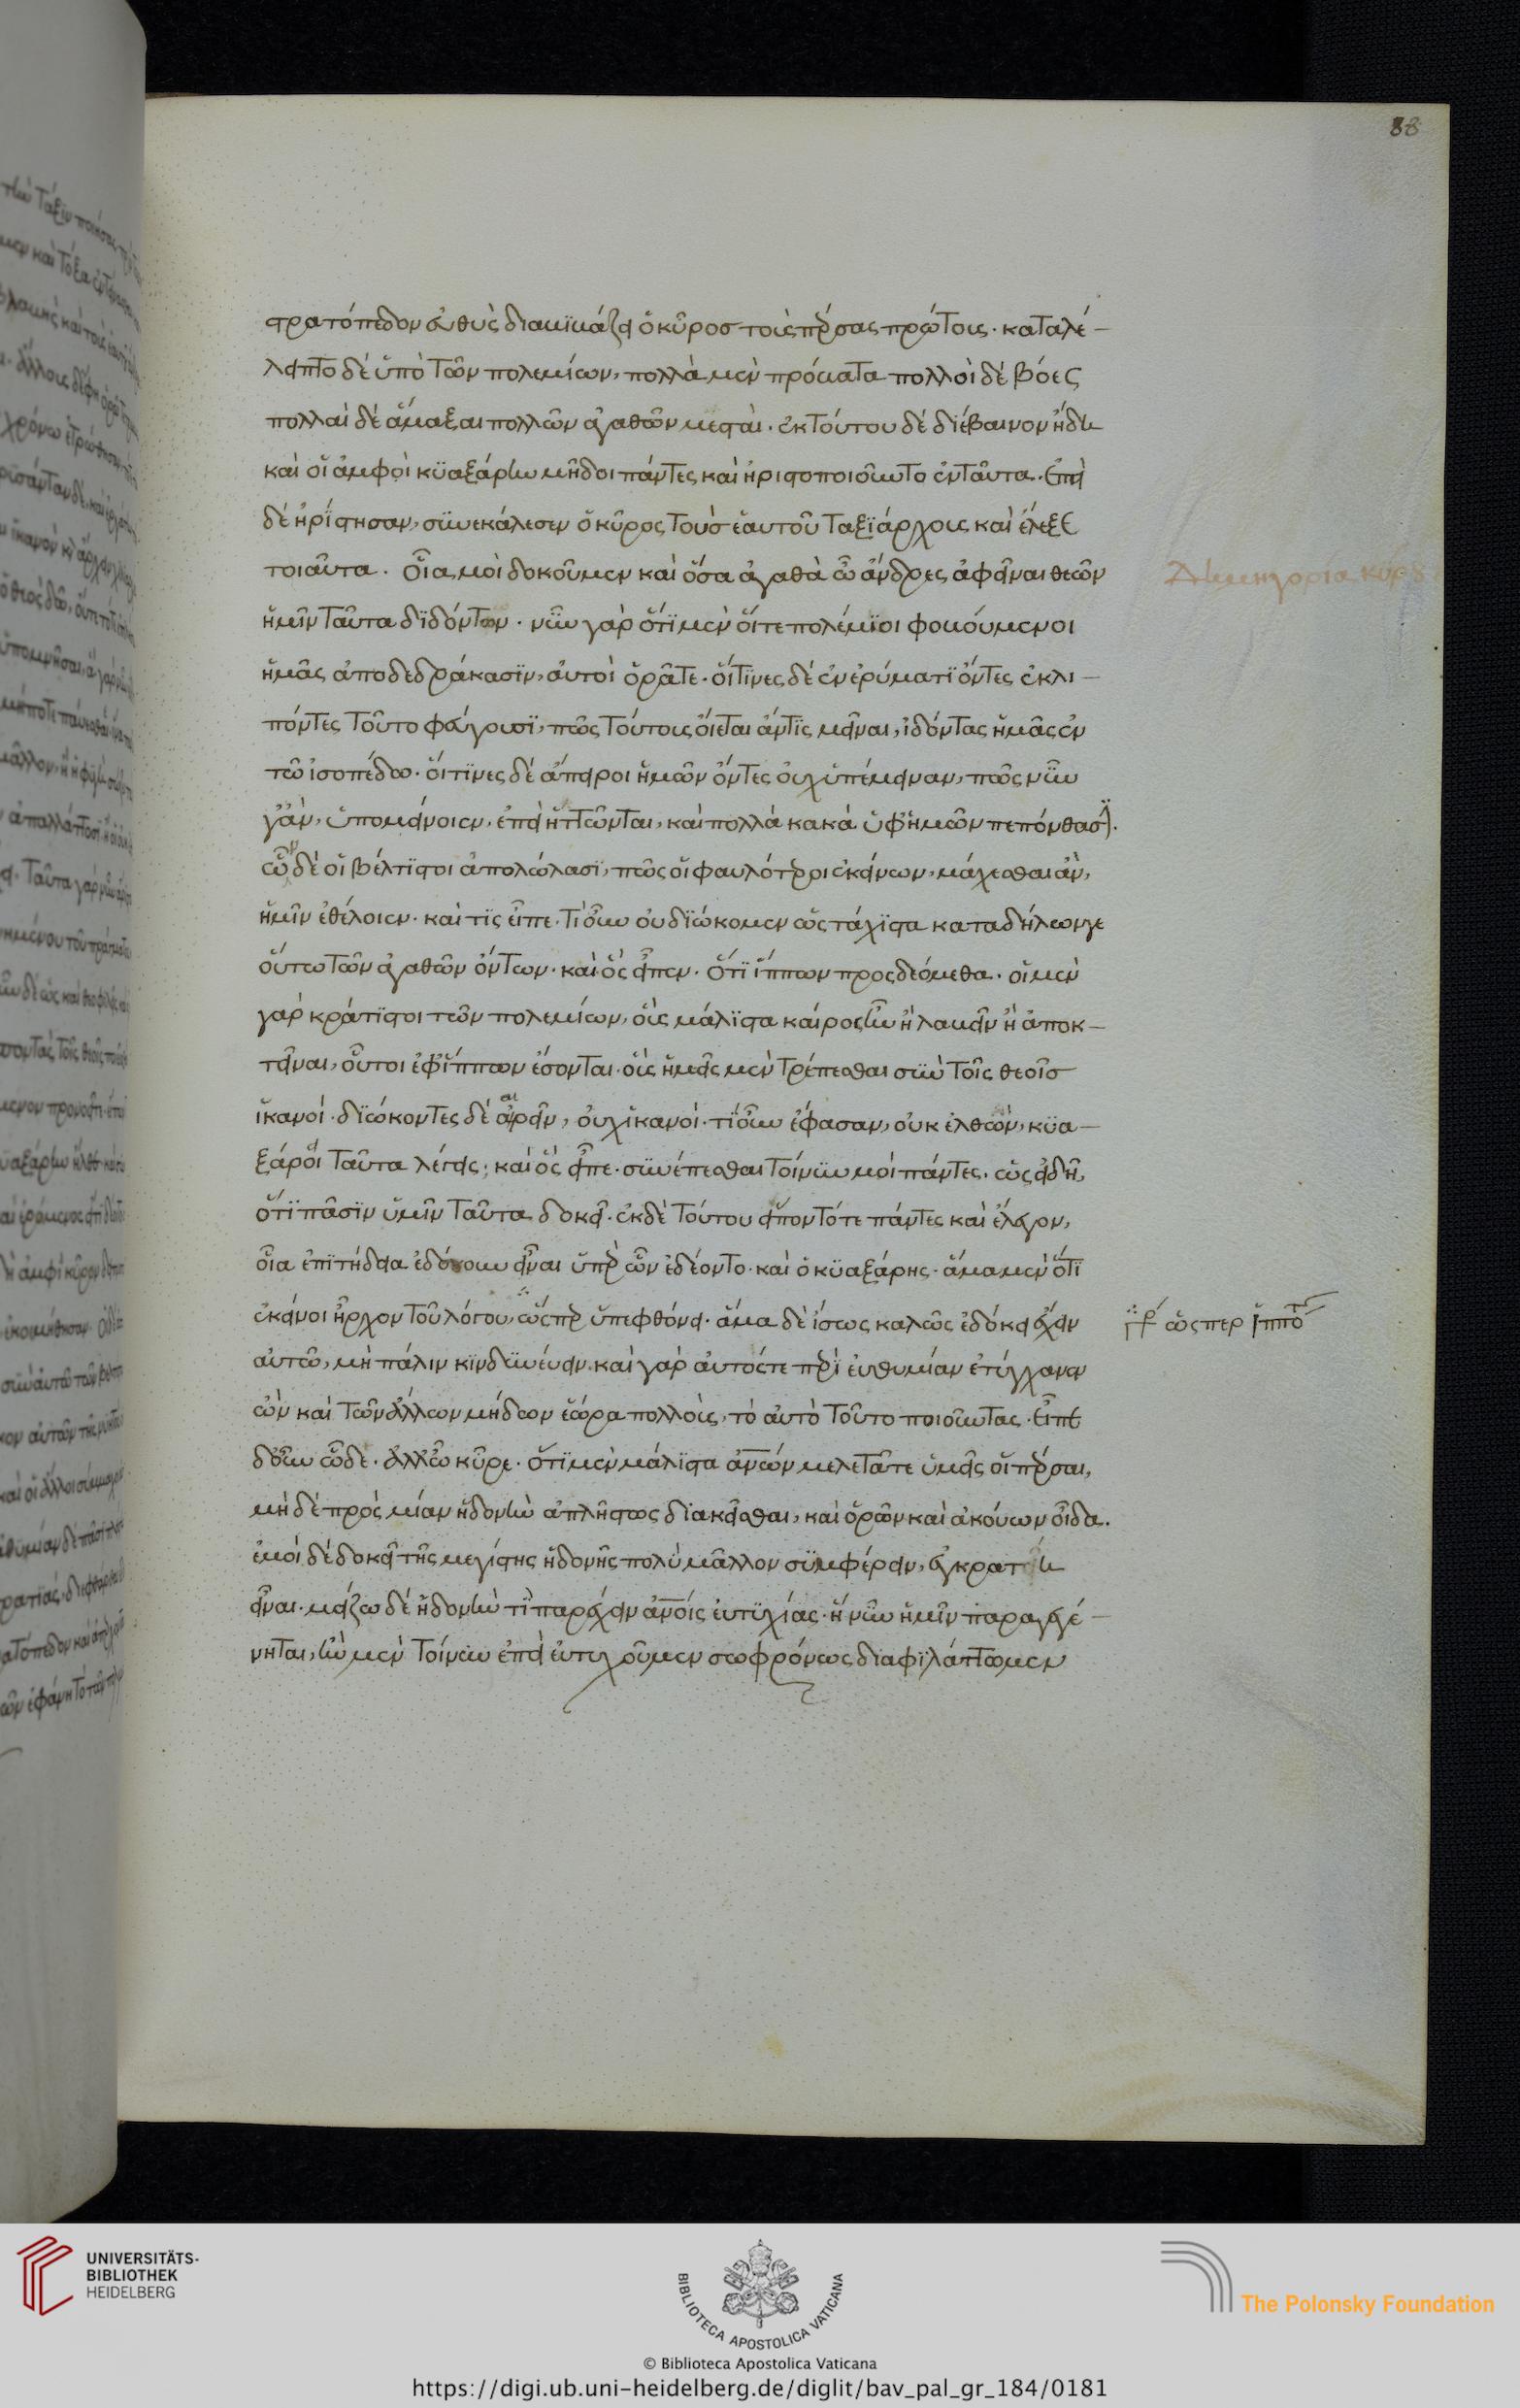 88
στρατόπεδον εὐθὺς διαβιβάζει ὁ κῦρος τοὺς πέρσας πρώτους. καταλέ-
λειπτο δὲ ὑπὸ τῶν πολεμίων, πολλὰ μὲν πρόβατα πολλοὶ δὲ βόες
πολλαὶ δὲ ἅμαξαι πολλῶν ἀγαθῶν μεσταί. ἐκ τούτου δὲ διέβαινον ἤδη
καὶ οἱ ἀμφὶ κυαξάρην μῆδοι πάντες καὶ ἠριστοποιοῦντο ἐνταῦτα. ἐπεὶ
δὲ ἠρίστησαν, συνεκάλεσεν ὁ κῦρος τοὺς ἑαυτοῦ ταξιάρχους καὶ ἔλεξε
τοιαῦτα. οἷα μοὶ δοκοῦμεν καὶ ὅσα ἀγαθὰ ὦ ἄνδρες ἀφεῖναι θεῶν
δημηγορία κύρου
ἡμῖν ταῦτα διδόντων. νῦν γὰρ ὅτι μὲν οἵ τε πολέμιοι φοβούμενοι
ἡμᾶς ἀποδεδράκασιν, αὐτοὶ ὁρᾶτε. οἵτινες δὲ ἐν ἐρύματι ὄντες ἐκλι-
πόντες τοῦτο φεύγουσι, πῶς τούτους οἴεται ἄν τις μεῖναι, ἰδόντας ἡμᾶς ἐν
τῶ ἰσοπέδω. οἵτινες δὲ ἄπειροι ἡμῶν ὄντες οὐχ ὑπέμειναν, πῶς νῦν
γ' ἂν, ὑπομείνοιεν, ἐπεὶ ἥττωνται, καὶ πολλὰ κακὰ ὑφ' ἡμῶν πεπόνθασι.
ὧν δὲ οἱ βέλτιστοι ἀπολώλασι, πῶς οἱ φαυλότεροι ἐκείνων, μάχεσθαι ἂν,
ἡμῖν ἐθέλοιεν. καί τις εἶπε. τί οὖν οὐ διώκομεν ὡς τάχιστα καταδήλων γε
οὕτω τῶν ἀγαθῶν ὄντων. καὶ ὃς εἶπεν. ὅτι ἵππων προσδεόμεθα. οἱ μὲν
γὰρ κράτιστοι τῶν πολεμίων, οὓς μάλιστα καίρος ἦν ἢ λαβεῖν ἢ ἀποκ-
τεῖναι, οὗτοι ἐφ' ἵππων ἔσονται. οὓς ἡμεῖς μὲν τρέπεσθαι σὺν τοῖς θεοῖς
ἱκανοί. διώκοντες δὲ αἱρεῖν, οὐχ ἱκανοί. τί οὖν ἔφασαν, οὐκ ἐλθὼν, κυα-
ξάρῃ ταῦτα λέγεις; καὶ ὃς εἶπε. συνέπεσθαι τοίνυν μοὶ πάντες. ὡς εἰδῆ,
ὅτι πᾶσιν ὑμῖν ταῦτα δοκεῖ. ἐκ δὲ τούτου εἵποντό τε πάντες καὶ ἔλεγον,
οἷα ἐπιτήδεια ἐδόκουν εἶναι ὑπὲρ ὧν ἐδέοντο. καὶ ὁ κυαξάρης. ἅμα μὲν ὅτι
ἐκεῖνοι ἦρχον τοῦ λόγου, ὥσπερ ὑπεφθόνει. ἅμα δὲ ἴσως καλῶς ἐδόκει ἔχειν
γρ ὥσπερ
αὐτῶ, μὴ πάλιν κινδυνεύειν. καὶ γὰρ αὐτός τε περὶ εὐθυμίαν ἐτύγχανεν
ὢν καὶ τῶν ἄλλων μήδων ἑώρα πολλοὺς, τὸ αὐτὸ τοῦτο ποιοῦντας. εἶπε
δ' οὖν ὧδε. ἀλλ' ὦ κῦρε. ὅτι μὲν μάλιστα ἀνῶν μελετᾶτε ὑμεῖς οἱ πέρσαι,
μὴ δὲ πρὸς μίαν ἡδονὴν ἀπλήστως διακεῖσθαι, καὶ ὁρῶν καὶ ἀκούων οἶδα.
ἐμοὶ δὲ δοκεῖ τῆς μεγίστης ἡδονῆς πολὺ μᾶλλον συμφέρειν, ἐγκρατῆ
εἶναι. μείζω δὲ ἡδονὴν τί παρέχειν ἀνοις εὐτυχίας. ἣ νῦν ἡμῖν παραγγέ-
νηται, ἢν μὲν τοίνυν ἐπεὶ εὐτυχοῦμεν σωφρόνως διαφυλάττωμεν
UNIVERSITÄTS-
BIBLIOTHEK
HEIDELBERG
BIBLIOTECA APOSTOLICA VATICANA
The Polonsky Foundation
© Biblioteca Apostolica Vaticana
https://digi.ub.uni-heidelberg.de/diglit/bav_pal_gr_184/0181